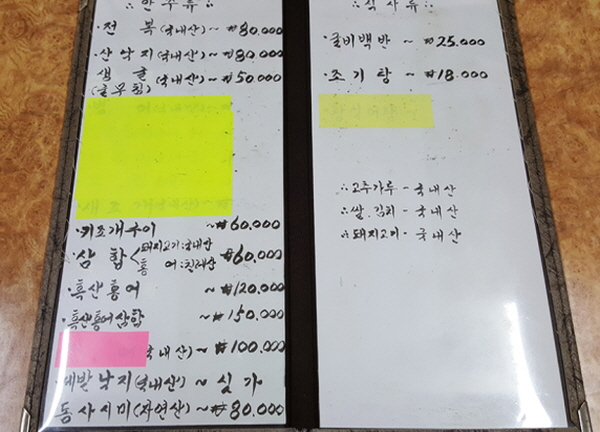 ∴ 안주류 ∴
·전 복(국내산)~₩80.000
·산낙지(국내산)~₩80.000
생 굴(국내산)~₩50.000
(굴무침)
·키조개구이 ~₩60.000
·삼 합< 돼지고기:국내산 ~₩60.000
홍 어:칠레산
·흑산홍어 ~₩120.000
·흑산홍어삼합 ~₩150.000
국내산)~₩100.000
·세발낙지(국내산)~ 싯가
동사시미(자연산)~₩80.000
∴ 식사류 ∴
·굴비백반 ~ ₩25.000
·조기탕 ~ ₩18.000
∴고추가루 - 국내산
∴쌀.김치 - 국내산
∴돼지고기 - 국내산